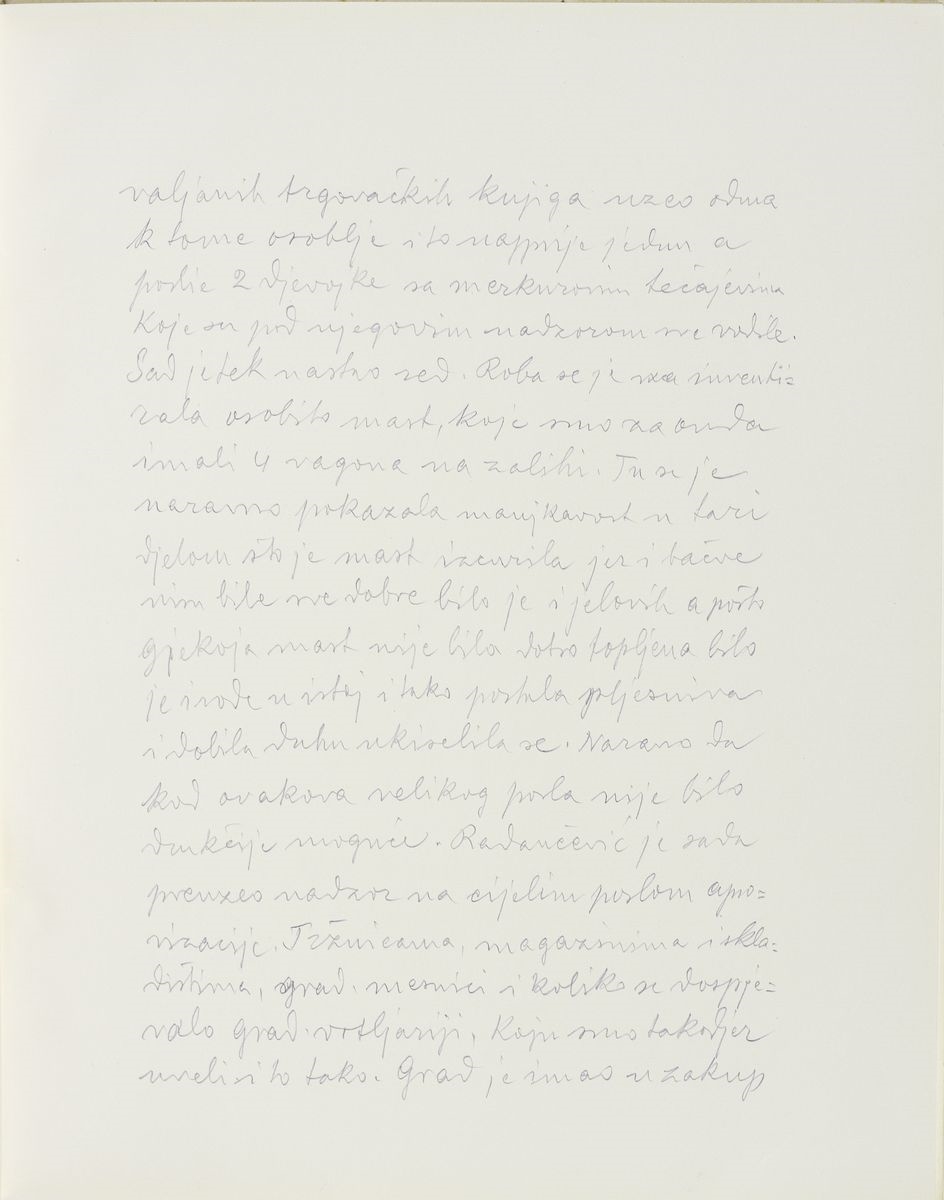 valjanih trgovačkih knjiga uzeo odma
k tome osoblje i to najprije jednu a
poslie 2 djevojke sa merkurovim tečajevima
Koje su pod njegovim nadzorom sve vodile.
Sad je tek nasto red. Roba se je sva inventi=
rala osobito mast, koje smo za onda
imali 4 vagona na zalihi. Tu se je
naravno pokazala manjkavost u tari
djelom što je mast izcurila jer i bačve
nisu bile sve dobre bilo je i jelovih a pošto
gjekoja mast nije bila dotro topljena bilo
je i vode u istoj i tako postala pljesniva
i dobila duhu ukiselila se. Naravno da
kod ovakova velikog posla nije bilo
drukčije moguće. Radančević je sada
preuzeo nadzor na cijelim poslom apro=
vizacije. Tržnicama, magazinima i skla=
dištima, grad. mesnici i koliko se dospje=
valo grad. vrtljariji, Koju smo takodjer
uveli i to tako. Grad je imao u zakup